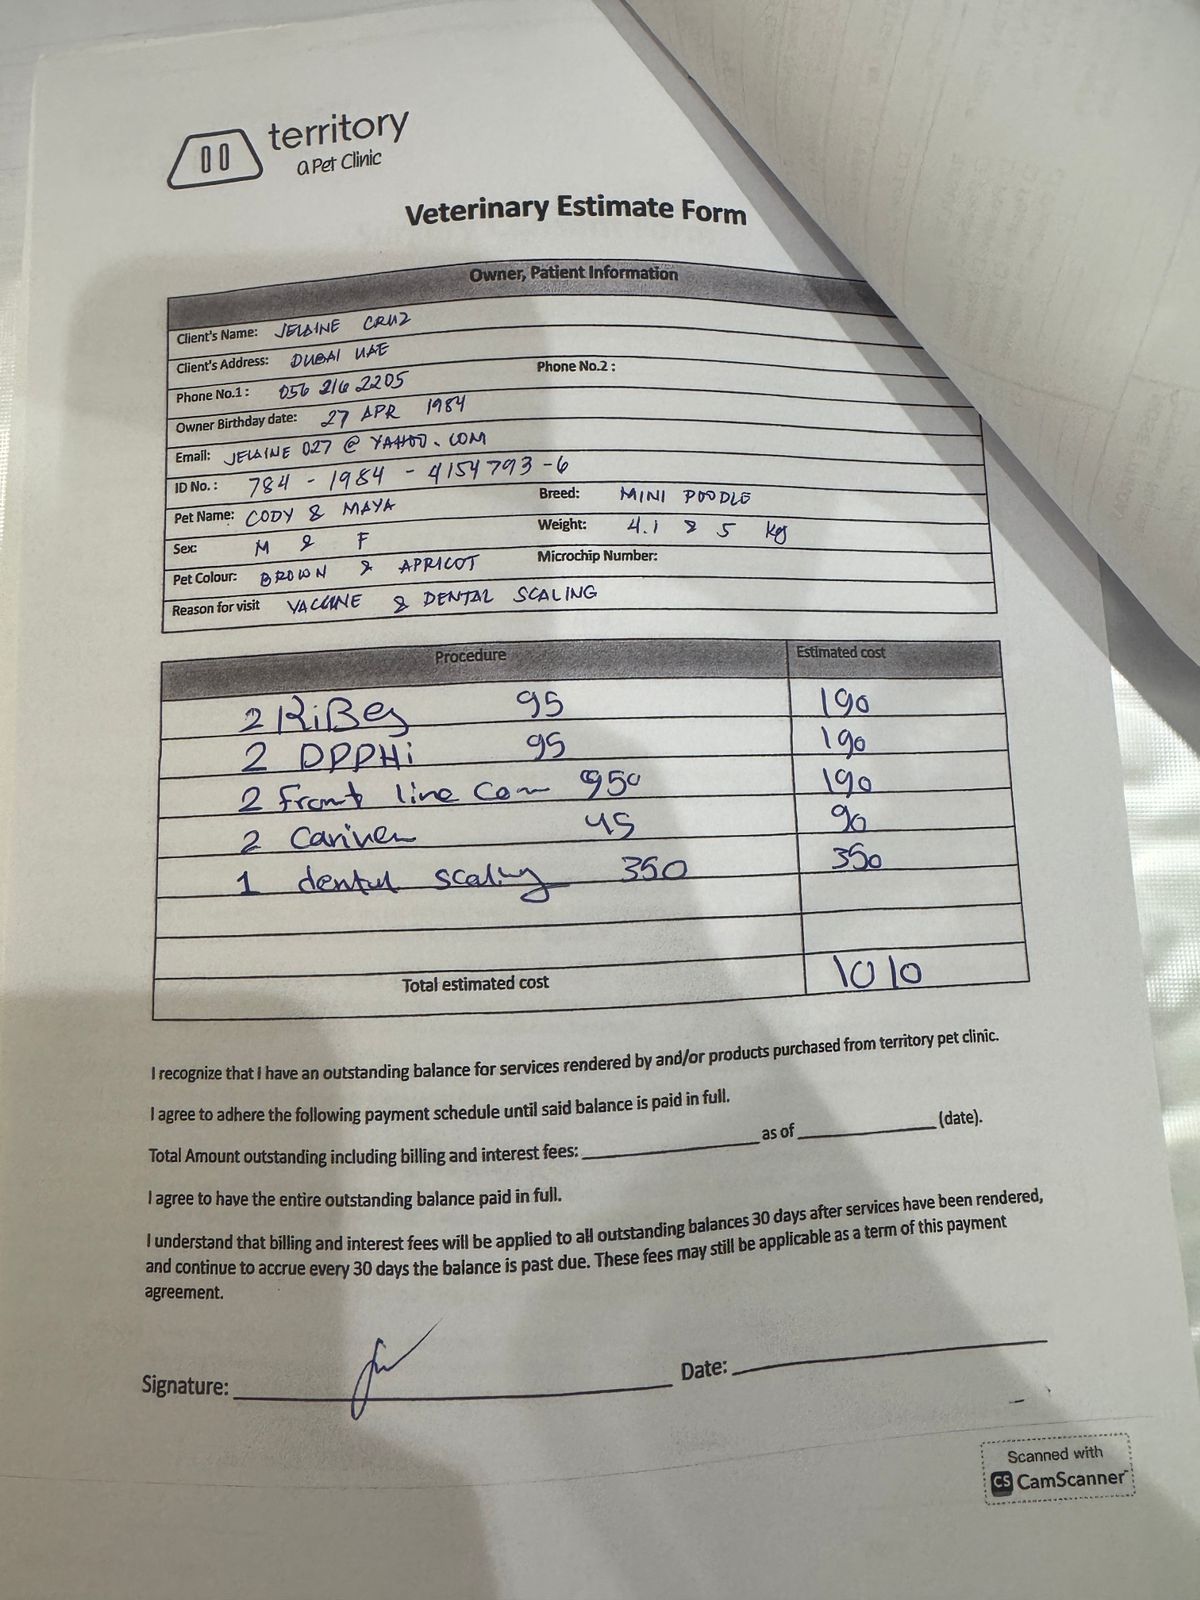 territory
a Pet Clinic
Veterinary Estimate Form
Owner, Patient Information
Client's Name: JELAINE CRUZ
Client's Address: DUBAI UAE
Phone No.1: 056 216 2205 Phone No.2:
Owner Birthday date: 27 APR 1984
Email: JELAINE 027 @ YAHOO.COM
ID No.: 784 - 1984 - 4154793 - 6
Pet Name: CODY & MAYA Breed: MINI POODLE
Sex: M & F Weight: 4.1 & 5 kg
Pet Colour: BROWN & APRICOT Microchip Number:
Reason for visit VACCINE & DENTAL SCALING
Procedure Estimated cost
2 RiBes 95 190
2 DPPHi 95 190
2 Front line Com 950 190
2 45 90
1 dental scaling 350 350
Total estimated cost 1010
I recognize that I have an outstanding balance for services rendered by and/or products purchased from territory pet clinic.
I agree to adhere the following payment schedule until said balance is paid in full.
Total Amount outstanding including billing and interest fees: as of (date).
I agree to have the entire outstanding balance paid in full.
I understand that billing and interest fees will be applied to all outstanding balances 30 days after services have been rendered,
and continue to accrue every 30 days the balance is past due. These fees may still be applicable as a term of this payment
agreement.
Signature: Date:
Scanned with
CS CamScanner